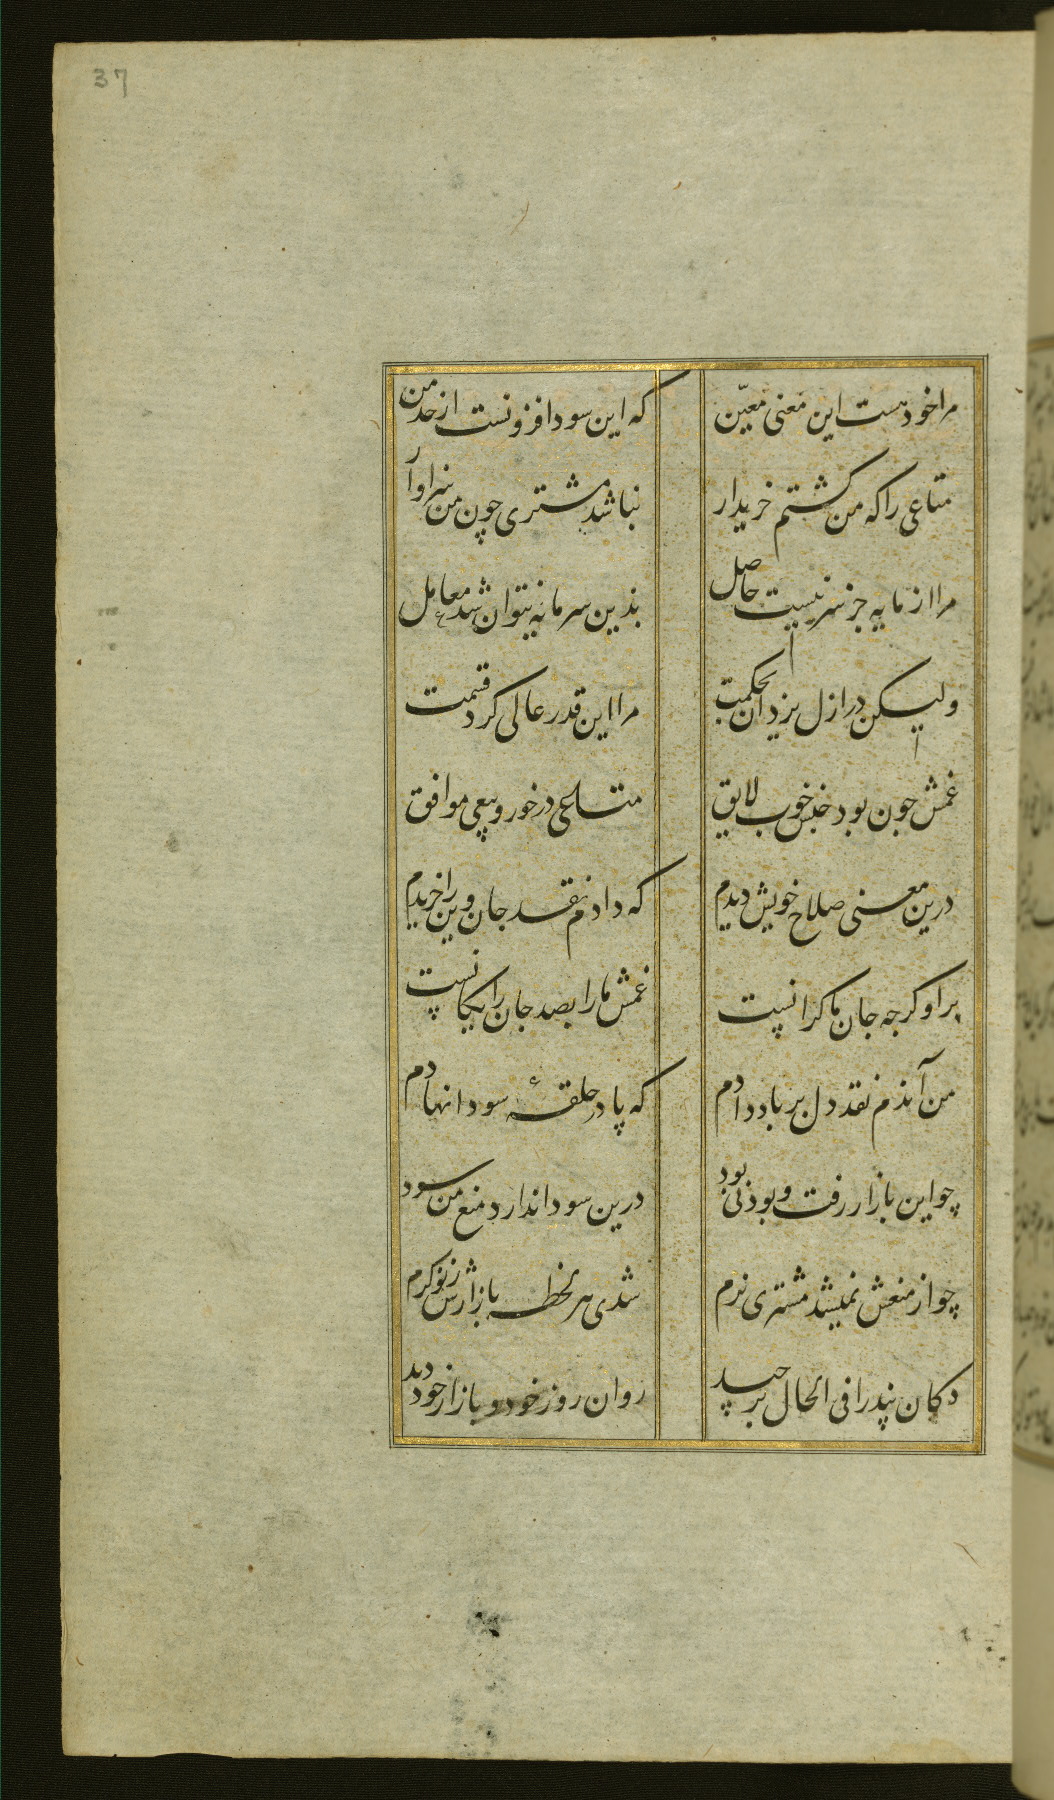 37
مرا خود هست این معنی معیّن
که این سودا فزونست از حد من
متاعی را که من گشتم خریدار
نباشد مشتری چون من سزاوار
مرا از مایه جز سر نیست حاصل
بذین سرمایه نتوان شد معامل
ولیکن در ازل یزدان بحکمت
مرا این قدر عالی کرد قسمت
غمش چون بود جنس خوب لایق
متاعی درخور و بیعی موافق
درین معنی صلاح خویش دیدم
که دادم نقد جان وین را خریدم
بر او کرجه جان ما کرانست
غمش ما را بصد جان رایکانست
من آندم نقد دل بر باد دادم
که پا در حلقهٔ سودا نهادم
چو این بازار رفت و بوذنی بود
درین سودا ندارد منع من سود
چو از منعش نمیشد مشتری نرم
شدی هر لحظه بازارش ز نو کرم
دکان پند را فی الحال برچید
روان روز خود و بازار خود دید